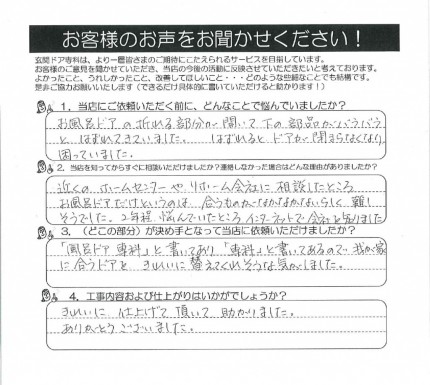 お客様のお声をお聞かせください！
玄関ドア専科は、より一層皆さまのご期待にこたえられるサービスを目指しています。
お客様のご意見を聞かせていただき、当店の今後の活動に反映させていただきたいと考えております。
よかったこと、うれしかったこと、改善してほしいこと・・・どのような些細なことでも結構です。
是非ご協力お願いいたします（できるだけ具体的に書いていただけると助かります！）
1．当店にご依頼いただく前に、どんなことで悩んでいましたか？
お風呂ドアの折れる部分が開いて下の部品がバラバラ
と、はずれてきていました。 はずれるとドアが閉まらなくなり
困っていました。
2．当店を知ってからすぐに相談いただけましたか？連絡しなかった場合はどんな理由がありましたか？
近くのホームセンターやリホーム会社に相談したところ
お風呂ドアだけというのは、合うものがなかなかないらしく難し
そうでした。2年程悩んでいたところインターネットで会社を知りました
3．（どこの部分）が決め手となって当店に依頼いただけましたか？
「風呂ドア専科」と書いてあり「専科」と書いてあるので、我が家
に合うドアときれいに替えてくれそうな気がしました。
4．工事内容および仕上がりはいかがでしょうか？
きれいに仕上げて頂いて助かりました。
ありがとうございました。